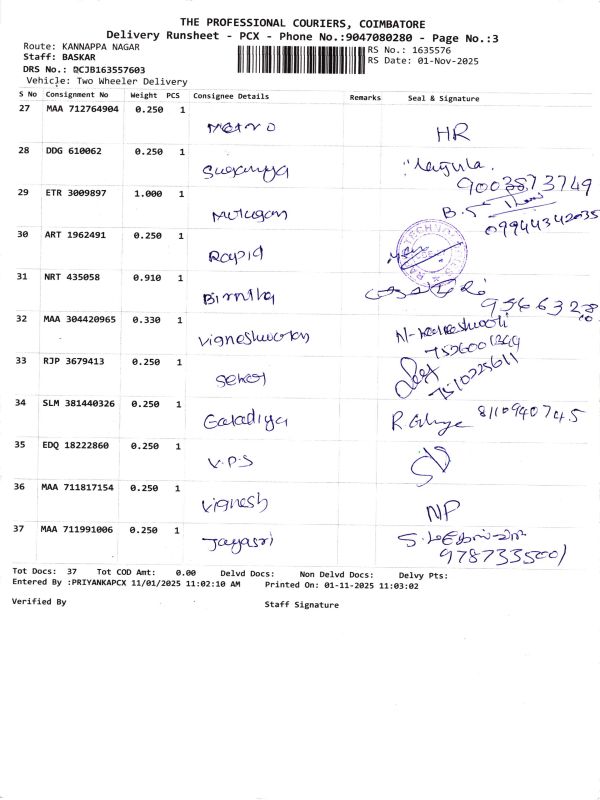 THE PROFESSIONAL COURIERS, COIMBATORE
Delivery Runsheet - PCX - Phone No.:9047080280 - Page No.:3
Route: KANNAPPA NAGAR
RS No.: 1635576
Staff: BASKAR
RS Date: 01-Nov-2025
DRS No.: QCJB163557603
Vehicle: Two Wheeler Delivery
S No Consignment No Weight PCS Consignee Details Remarks Seal & Signature
27 MAA 712764904 0.250 1
HR
28 DDG 610062 0.250 1
Sukanya
9003873749
29 ETR 3009897 1.000 1
Murugan
09944342035
30 ART 1962491 0.250 1
Rapid
31 NRT 435058 0.910 1
32 MAA 304420965 0.330 1
Vigneshwaran
33 RJP 3679413 0.250 1
Sekar
7510225611
34 SLM 381440326 0.250 1
8110940745
35 EDQ 18222860 0.250 1
V.P.S
36 MAA 711817154 0.250 1
Vignesh
NP
37 MAA 711991006 0.250 1
Jayasri
9787335001
Tot Docs: 37 Tot COD Amt: 0.00 Delvd Docs: Non Delvd Docs: Delvy Pts:
Entered By :PRIYANKAPCX 11/01/2025 11:02:10 AM Printed On: 01-11-2025 11:03:02
Verified By Staff Signature